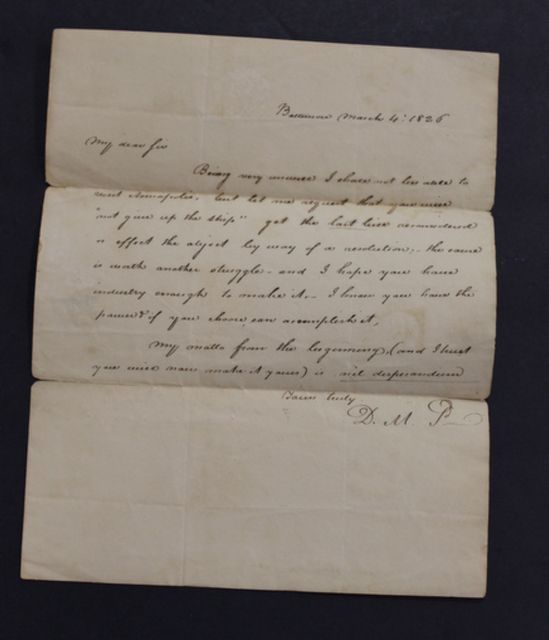 Baltimore March 4th 1826
My dear Sir
Being very unwell I shall not be able to
visit Annapolis, but let me request that you will
"not give up the Ship" get the last reconsidered
effect the object by way of a resolution, - the cause
is worth another struggle - and I hope you have
industry enough to make it, - I know you have the
power & if you choose can accomplish it,
My motto from the beginning, (and I trust
you will now make it yours) is nil desperandum
Yours truly
D. M. P